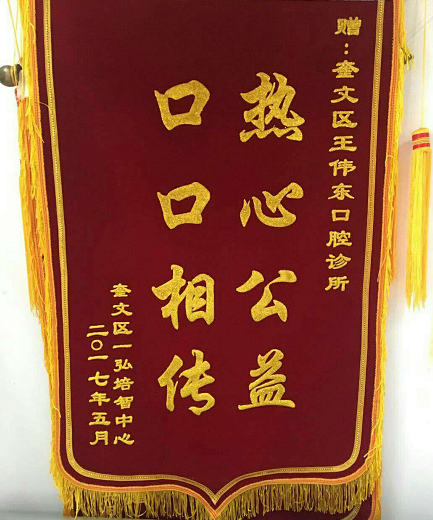 赠：奎文区王伟东口腔诊所
热心公益
口口相传
奎文区一弘培智中心
二〇一七年五月